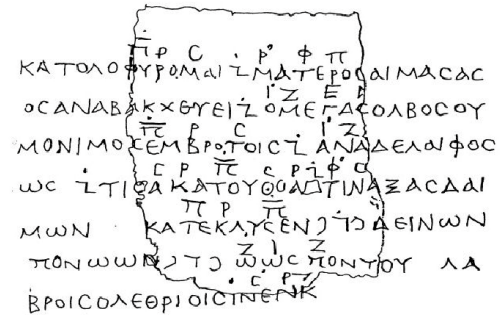 Π Ρ C Ρ Φ Π
ΚΑΤΟΛΟΦΥΡΟΜΑΙ Ζ ΜΑΤΕΡΟCΑΙΜΑCΑC
Ι Ζ Ε
ΟCΑΝΑΒΑΚΧΕΥΕΙ Ζ ΟΜΕΓΑCΟΛΒΟCΟΥ
Π Ρ C Ι Ζ
ΜΟΝΙΜΟCΕΜΒΡΟΤΟΙC Ζ ΑΝΑΔΕΛΑΙΦΟC
C Ρ Π C Ρ Ζ Φ C
ΩC Ζ ΤΙCΑΚΑΤΟΥΘΟΑCΤΙΝΑΞΑCΔΑΙ
Π Ρ Π
ΜΩΝ ΚΑΤΕΚΛΥCΕΝ ΔΕΙΝΩΝ
Ζ Ι Ζ
ΠΟΝΩΩΝ ΩΩC ΠΟΝΤΟΥ ΛΑ
C Ρ
ΒΡΟΙCΟΛΕΘΡΙΟΙCΙΝΕΝΚ